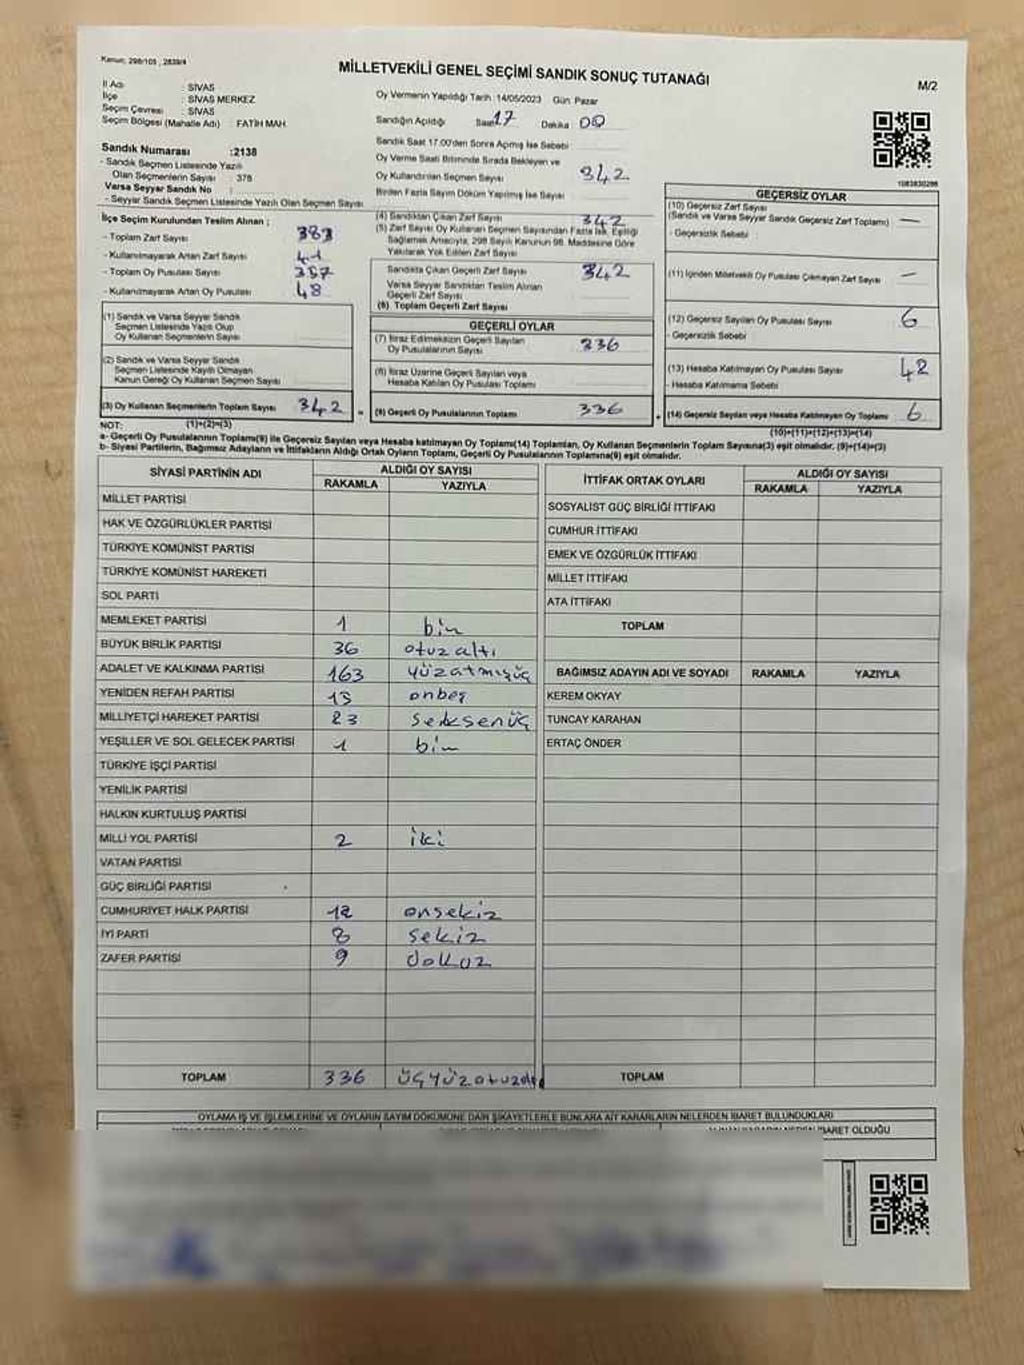 Kanun: 298/105 , 2839/4
MİLLETVEKİLİ GENEL SEÇİMİ SANDIK SONUÇ TUTANAĞI
M/2
İl Adı : SİVAS
İlçe : SİVAS MERKEZ
Seçim Çevresi : SİVAS
Seçim Bölgesi (Mahalle Adı) : FATİH MAH.
Oy Vermenin Yapıldığı Tarih :14/05/2023 Gün: Pazar
Sandığın Açıldığı Saat 17 Dakika 00
Sandık Saat 17.00'den Sonra Açılmış İse Sebebi
Oy Verme Saati Bitiminde Sırada Bekleyen ve
Oy Kullandırılan Seçmen Sayısı 342
Birden Fazla Sayım Döküm Yapılmış İse Sayısı
Sandık Numarası :2138
- Sandık Seçmen Listesinde Yazılı
Olan Seçmenlerin Sayısı : 378
Varsa Seyyar Sandık No :
- Seyyar Sandık Seçmen Listesinde Yazılı Olan Seçmen Sayısı
İlçe Seçim Kurulundan Teslim Alınan ;
- Toplam Zarf Sayısı 383
- Kullanılmayarak Artan Zarf Sayısı 41
- Toplam Oy Pusulası Sayısı 387
- Kullanılmayarak Artan Oy Pusulası 48
(1) Sandık ve Varsa Seyyar Sandık
Seçmen Listesinde Yazılı Olup
Oy Kullanan Seçmenlerin Sayısı
(2) Sandık ve Varsa Seyyar Sandık
Seçmen Listesinde Kayıtlı Olmayan
Kanun Gereği Oy Kullanan Seçmen Sayısı
(3) Oy Kullanan Seçmenlerin Toplam Sayısı 342 =
(1)+(2)=(3)
(4) Sandıktan Çıkan Zarf Sayısı 342
(5) Zarf Sayısı Oy Kullanan Seçmen Sayısından Fazla İse, Eşitliği
Sağlamak Amacıyla, 298 Sayılı Kanunun 98. Maddesine Göre
Yakılarak Yok Edilen Zarf Sayısı
Sandıkta Çıkan Geçerli Zarf Sayısı 342
Varsa Seyyar Sandıktan Teslim Alınan
Geçerli Zarf Sayısı
(6) Toplam Geçerli Zarf Sayısı
GEÇERLİ OYLAR
(7) İtiraz Edilmeksizin Geçerli Sayılan
Oy Pusulalarının Sayısı 236
(8) İtiraz Üzerine Geçerli Sayılan veya
Hesaba Katılan Oy Pusulası Toplamı
(9) Geçerli Oy Pusulalarının Toplamı 336 +
1083830286
GEÇERSİZ OYLAR
(10) Geçersiz Zarf Sayısı
(Sandık ve Varsa Seyyar Sandık Geçersiz Zarf Toplamı) —
- Geçersizlik Sebebi :
(11) İçinden Milletvekili Oy Pusulası Çıkmayan Zarf Sayısı —
(12) Geçersiz Sayılan Oy Pusulası Sayısı 6
- Geçersizlik Sebebi
(13) Hesaba Katılmayan Oy Pusulası Sayısı 42
- Hesaba Katılmama Sebebi
(14) Geçersiz Sayılan veya Hesaba Katılmayan Oy Toplamı 6
(10)+(11)+(12)+(13)=(14)
NOT:
a- Geçerli Oy Pusulalarının Toplamı(9) ile Geçersiz Sayılan veya Hesaba katılmayan Oy Toplamı(14) Toplamları, Oy Kullanan Seçmenlerin Toplam Sayısına(3) eşit olmalıdır. (9)+(14)=(3)
b- Siyasi Partilerin, Bağımsız Adayların ve İttifakların Aldığı Ortak Oyların Toplamı, Geçerli Oy Pusulalarının Toplamına(9) eşit olmalıdır.
SİYASİ PARTİNİN ADI ALDIĞI OY SAYISI
RAKAMLA YAZIYLA
MİLLET PARTİSİ
HAK VE ÖZGÜRLÜKLER PARTİSİ
TÜRKİYE KOMÜNİST PARTİSİ
TÜRKİYE KOMÜNİST HAREKETİ
SOL PARTİ
MEMLEKET PARTİSİ 1 bir
BÜYÜK BİRLİK PARTİSİ 36 otuzaltı
ADALET VE KALKINMA PARTİSİ 163 yüzatmışüç
YENİDEN REFAH PARTİSİ 15 onbeş
MİLLİYETÇİ HAREKET PARTİSİ 83 seksenüç
YEŞİLLER VE SOL GELECEK PARTİSİ 1 bir
TÜRKİYE İŞÇİ PARTİSİ
YENİLİK PARTİSİ
HALKIN KURTULUŞ PARTİSİ
MİLLİ YOL PARTİSİ 2 iki
VATAN PARTİSİ
GÜÇ BİRLİĞİ PARTİSİ
CUMHURİYET HALK PARTİSİ 18 onsekiz
İYİ PARTİ 8 sekiz
ZAFER PARTİSİ 9 dokuz
TOPLAM 336 üçyüzotuzaltı
İTTİFAK ORTAK OYLARI ALDIĞI OY SAYISI
RAKAMLA YAZIYLA
SOSYALİST GÜÇ BİRLİĞİ İTTİFAKI
CUMHUR İTTİFAKI
EMEK VE ÖZGÜRLÜK İTTİFAKI
MİLLET İTTİFAKI
ATA İTTİFAKI
TOPLAM
BAĞIMSIZ ADAYIN ADI VE SOYADI RAKAMLA YAZIYLA
KEREM OKYAY
TUNCAY KARAHAN
ERTAÇ ÖNDER
TOPLAM
OYLAMA İŞ VE İŞLEMLERİNE VE OYLARIN SAYIM DÖKÜMÜNE DAİR ŞİKAYETLERLE BUNLARA AİT KARARLARIN NELERDEN İBARET BULUNDUKLARI
İBARET OLDUĞU